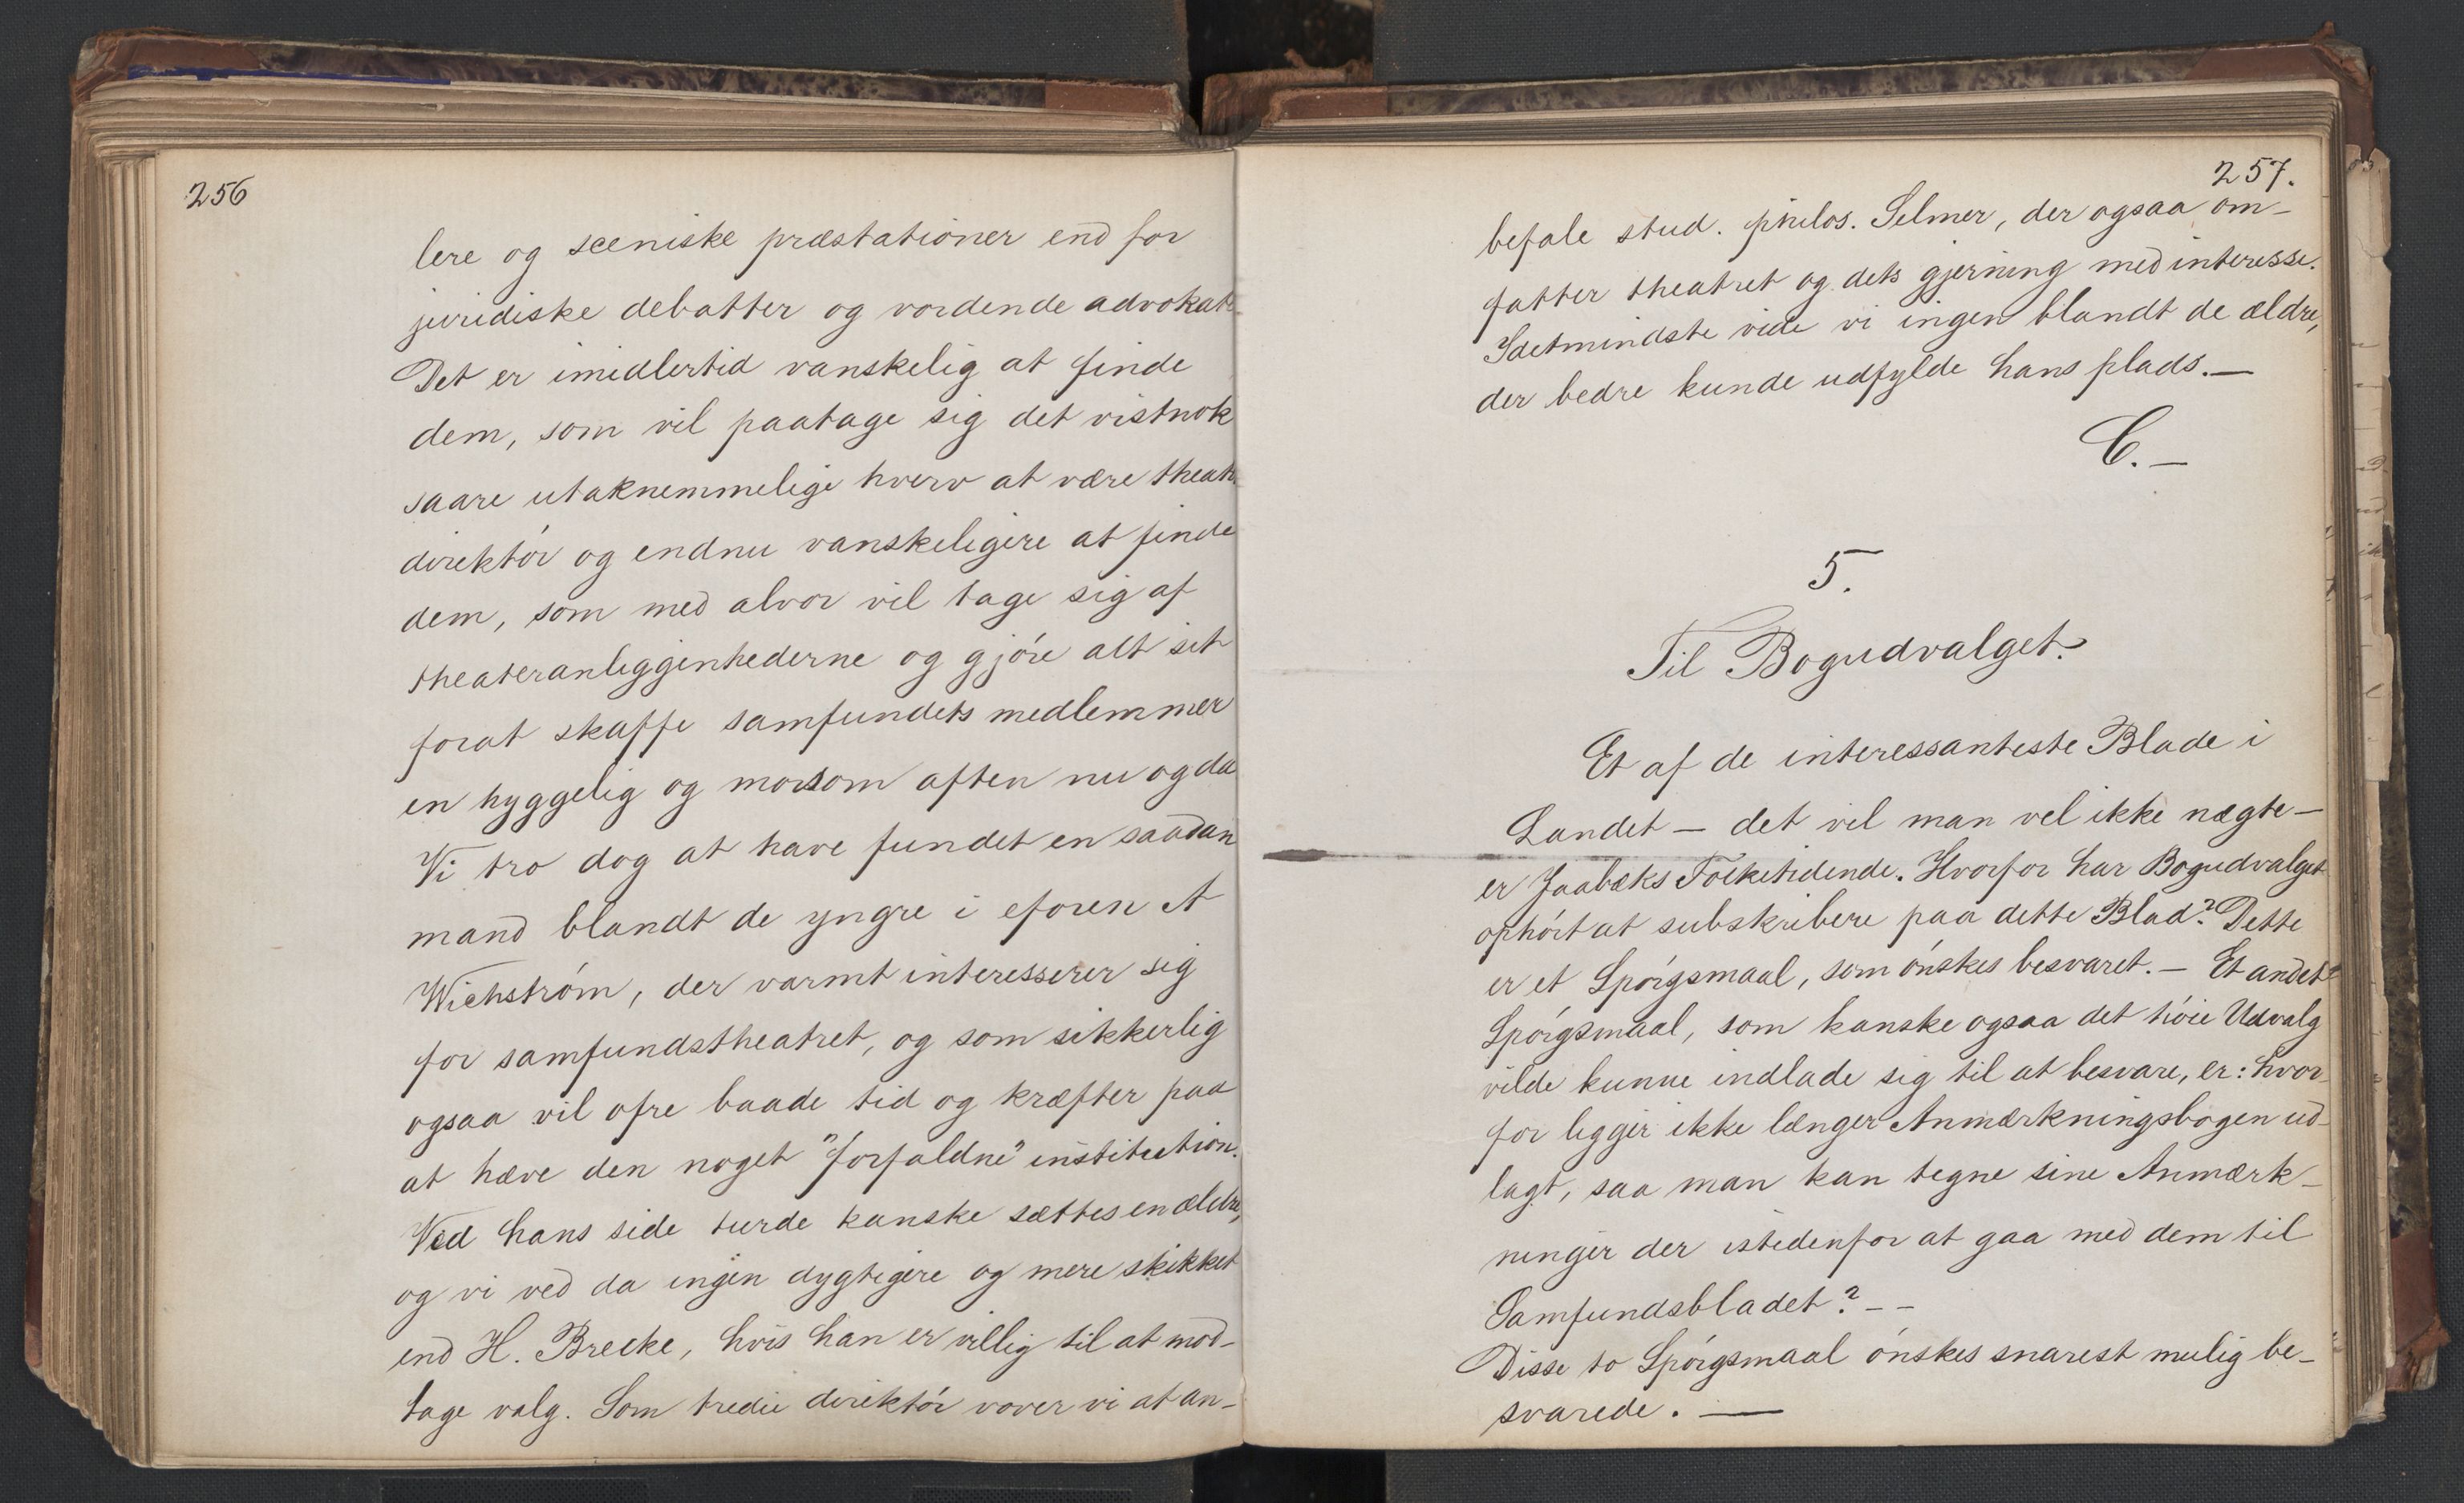 256
lere og sceniske præstationer end for
juridiske debatter og vordende advokat-
Det er imidlertid vanskelig at finde
dem, som vil paatage sig det vistnok
saare utaknemmelige hverv at være theat
direktór og endnu vanskeligere at finde
dem, som med alvor vil tage sig af
theateranliggenhederne og gjóre alt sit
forat skaffe samfundets medlemmer
en hyggelig og morsom aften nu og da
Vi tro dog at have fundet en saadan
mand blandt de yngre i eforen A
Wichstróm, der varmt interesserer sig
for samfundstheatret, og som sikkerlig
ogsaa vil ofre baade tid og kræfter paa
at hæve den noget "forfaldne" institution.
Ved hans side turde kanske sættes en ældre,
og vi ved da ingen dygtigere og mere skikket
end H. Brecke, hvis han er villig til at mod-
tage valg. Som tredie direktór vover vi at an-
257.
befale stud. philos. Selmer, der ogsaa om-
fatter theatret og dets gjerning med interesse.
Idetmindste vide vi ingen blandt de ældre,
der bedre kunde udfylde hans plads.—
C.—
5.
Til Bogudvalget.
Et af de interessanteste Blade i
Landet — det vil man vel ikke nægte —
er Jaabæks Folketidende. Hvorfor har Bogudvalget
ophórt at subskribere paa dette Blad? Dette
er et Spórgsmaal, som ónskes besvaret. — Et andet
Spórgsmaal, som kanske ogsaa det hóie Udvalg
vilde kunne indlade sig til at besvare, er: hvor-
for ligger ikke længer Anmærkningsbogen ud-
lagt, saa man kan tegne sine Anmærk-
ninger der istedenfor at gaa med dem til
Samfundsbladet? - -
Disse to Spórgsmaal ónskes snarest mulig be-
svarede. —